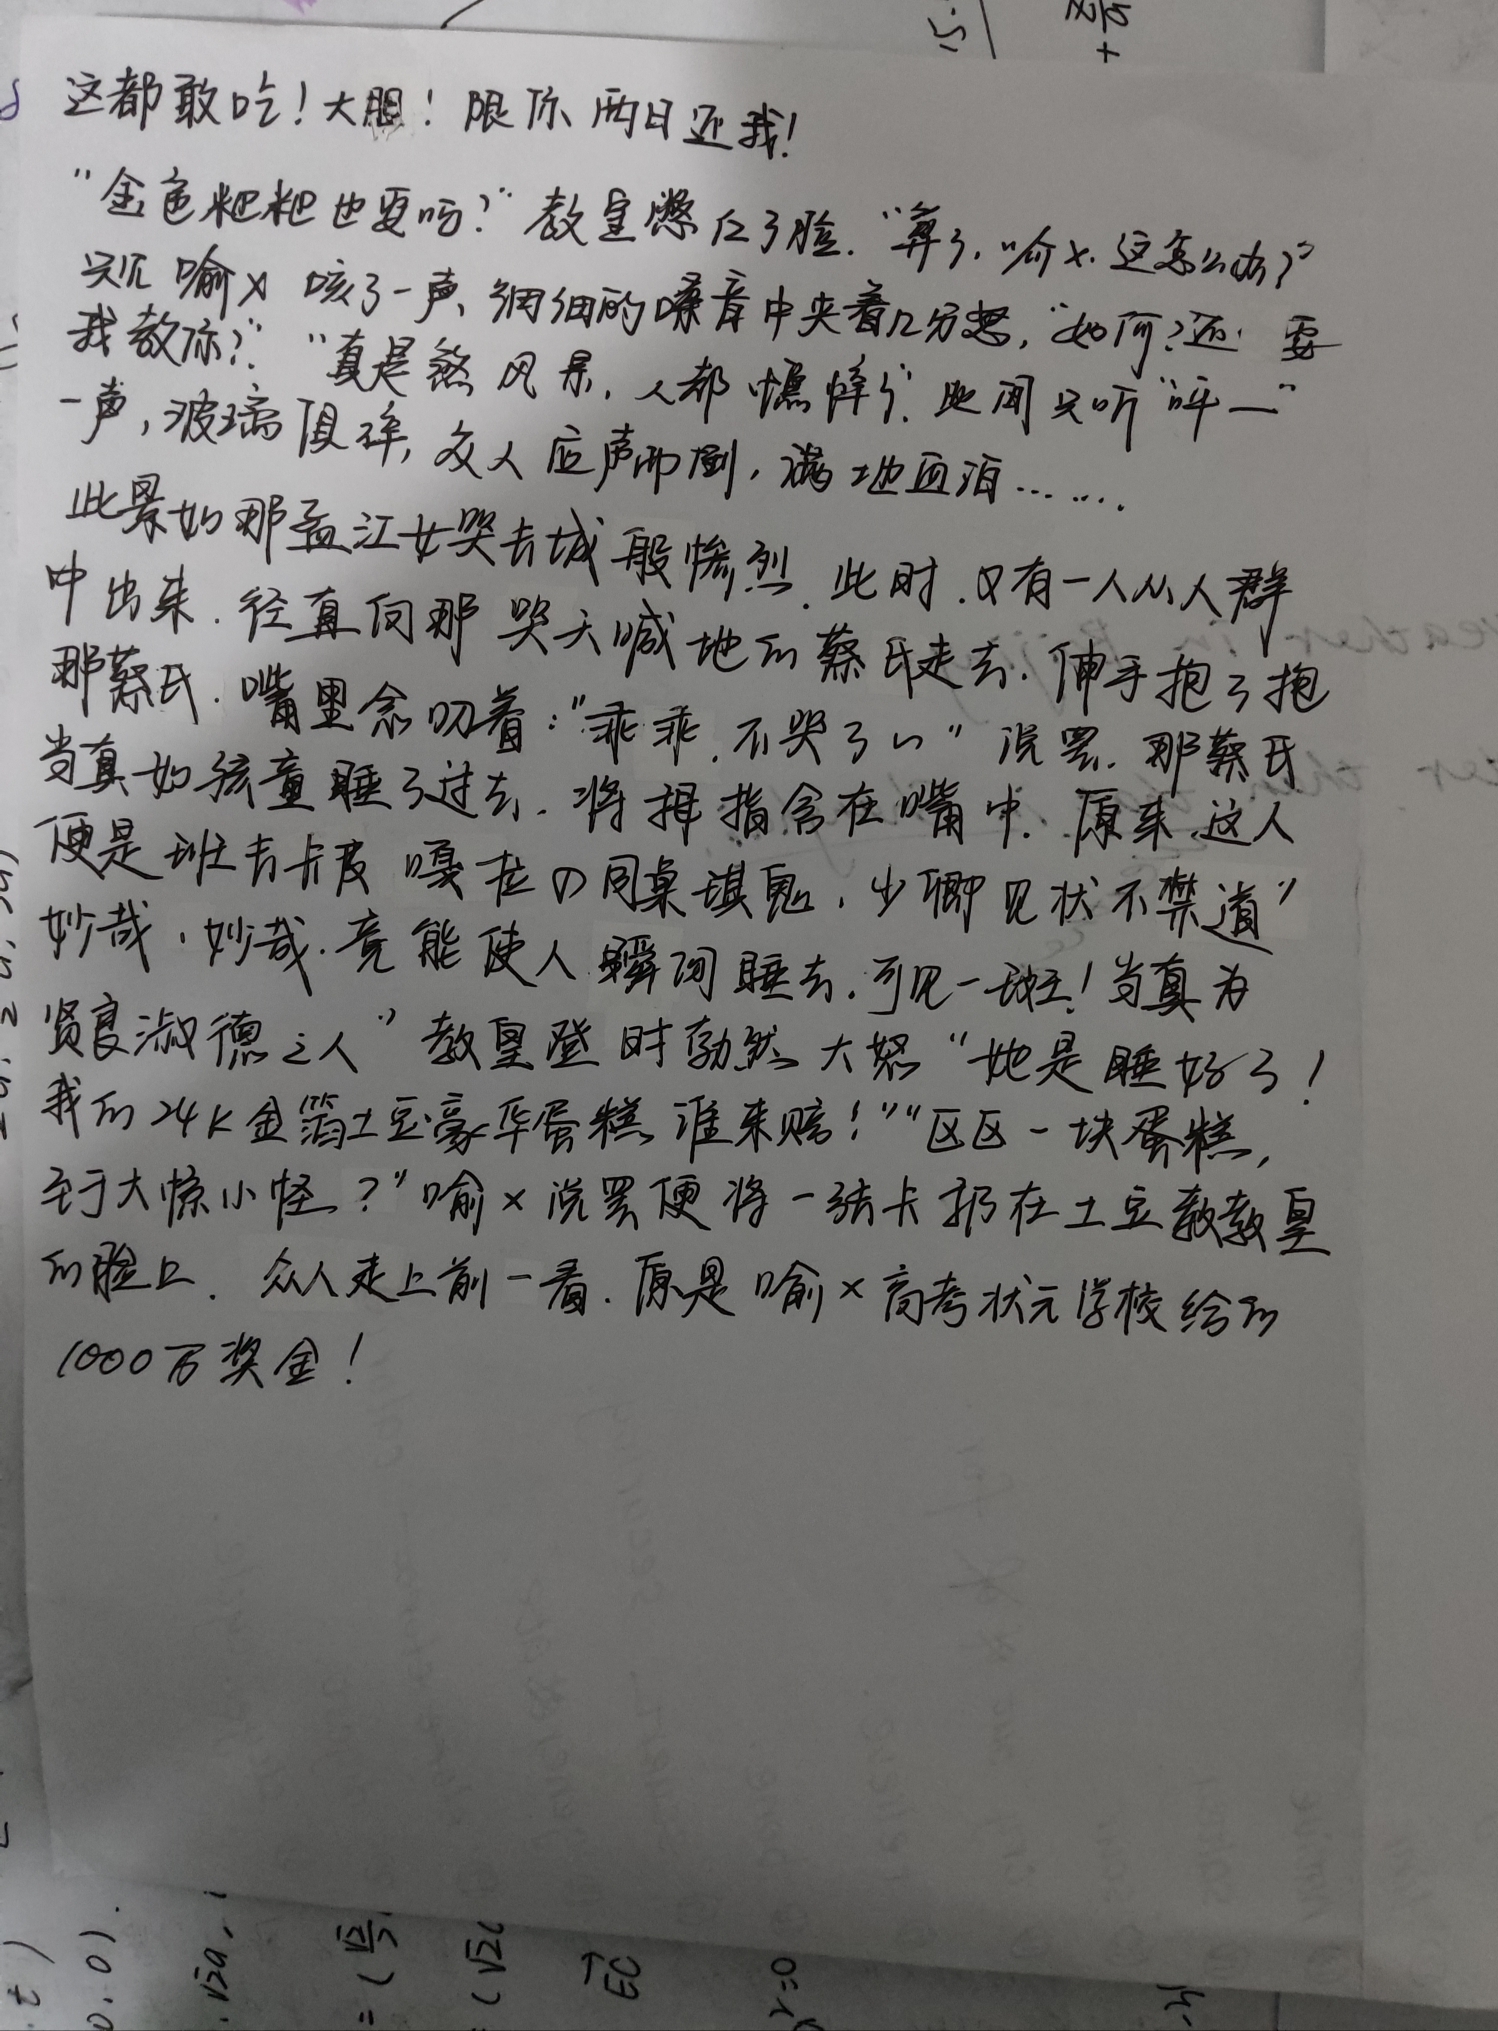 这都敢吃！大胆！限你两日还我！
"金色粑粑也要吗？"教皇憋红了脸."算了,喻x.这怎么办？"
只见喻x咳了一声,细细的嗓音中夹着几分怒,"如何？还要
我教你？""真是煞风景,人都憔悴了".此间只听"呯—"
一声,玻璃俱碎,众人应声而倒,满地血泊……
此景如那孟江女哭长城般惨烈.此时.又有一人从人群
中出来.径直向那哭天喊地的蔡氏走去.伸手抱了抱
那蔡氏.嘴里念叨着："乖乖.不哭了~"说罢.那蔡氏
当真如孩童睡了过去.将拇指含在嘴中.原来,这人
便是班长卡皮嘎拉の同桌琪鬼,少卿见状不禁道"
妙哉,妙哉.竟能使人瞬间睡去.可见一斑！当真为
贤良淑德之人"教皇登时勃然大怒"她是睡好了！
我的24K金箔土豆豪华蛋糕谁来赔！""区区一块蛋糕,
至于大惊小怪？"喻x说罢便将一张卡扔在土豆教教皇
的脸上.众人走上前一看.原是喻x高考状元学校给的
1000万奖金！
15
= (√2
EC
r=0